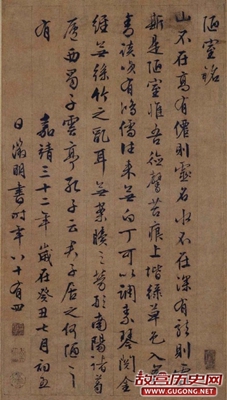 陋室銘
山不在高有僊則名水不在深有龍則靈
斯是陋室惟吾德馨苔痕上堦綠草色入簾
青談笑有鴻儒往来無白丁可以調素琴閱金
經無絲竹之亂耳無案牘之勞形南陽諸葛
廬西蜀子雲亭孔子云君子居之何陋之
有
嘉靖三十二年歲在癸丑七月初五
日徵明書時年八十有四
故宫历史网